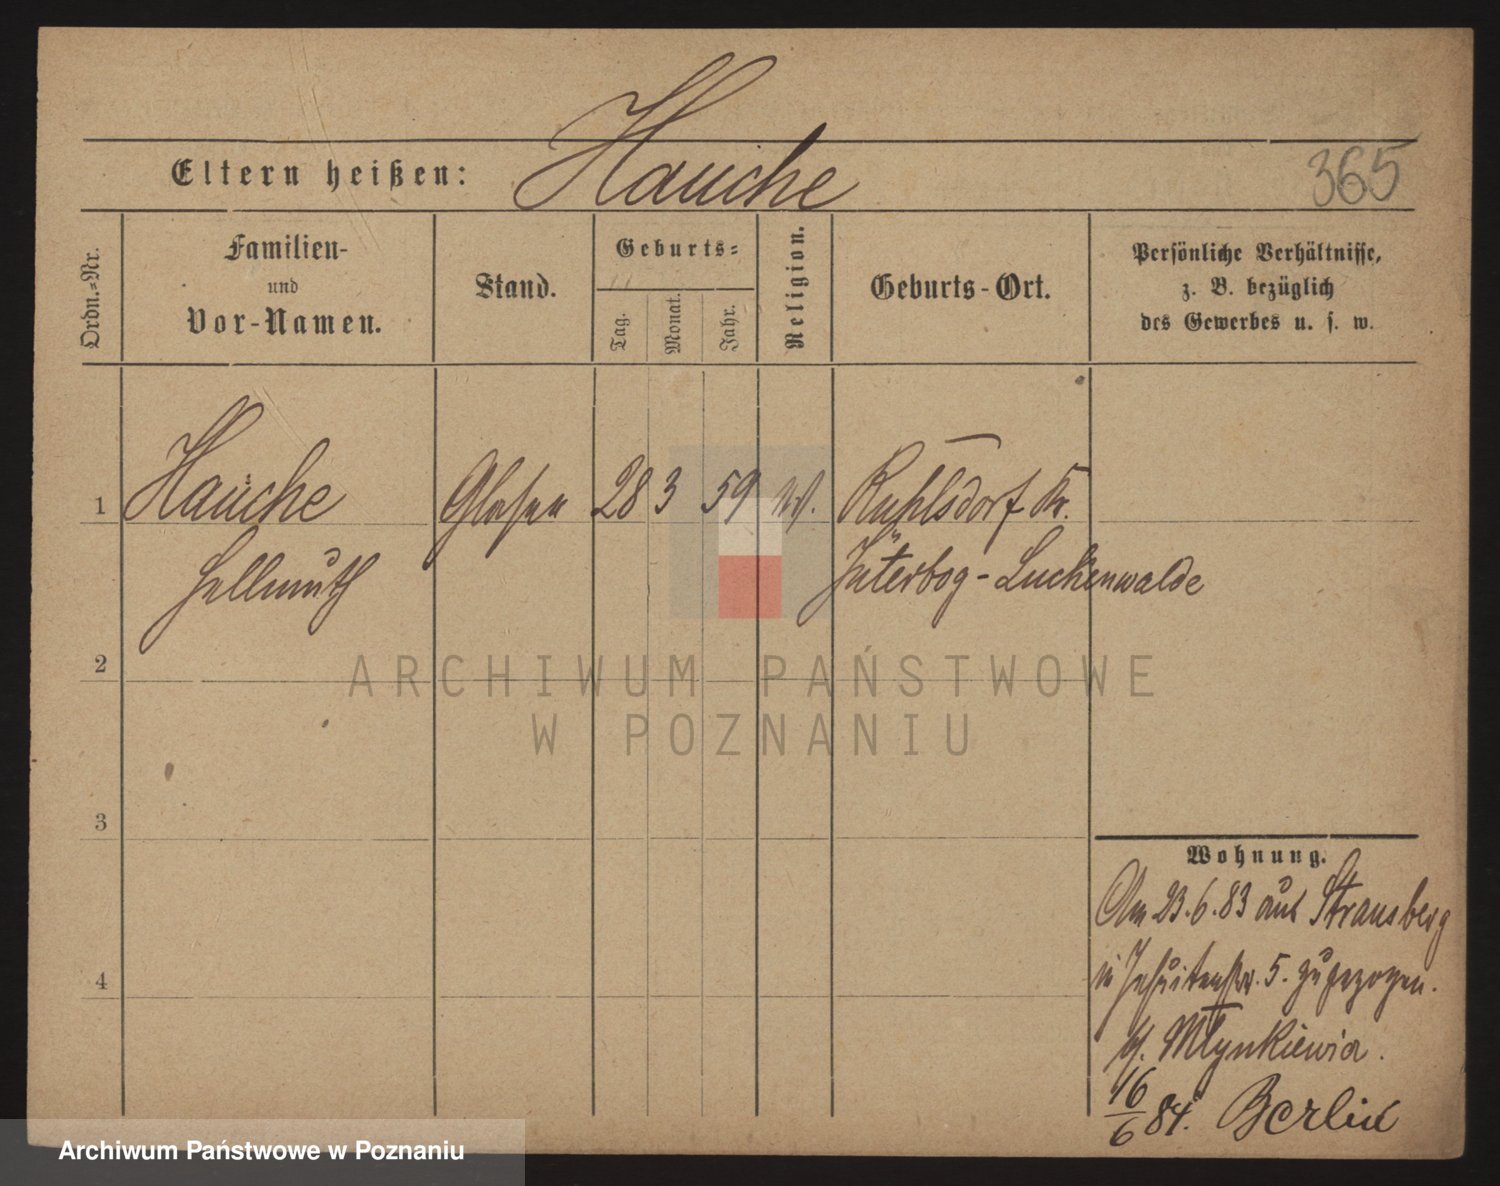 Eltern heißen: Hauche 365
Ordn.=Nr.
Familien-
und
Vor-Namen.
Stand.
Geburts=
Tag.
Monat.
Jahr.
Religion.
Geburts-Ort.
Persönliche Verhältnisse,
z. B. bezüglich
des Gewerbes u. s. w.
1 Hauche 28 3 59 Ruhlsdorf Kr.
Hellmuth Jüterbog-Luckenwalde
2
ARCHIWUM PAŃSTWOWE
W POZNANIU
3
Wohnung.
Am 23.6.83 aus Strausberg
in Jesuitenstr. 5. zugezogen.
b/. Mlynkiewicz.
16/6 84. Berlin
4
Archiwum Państwowe w Poznaniu